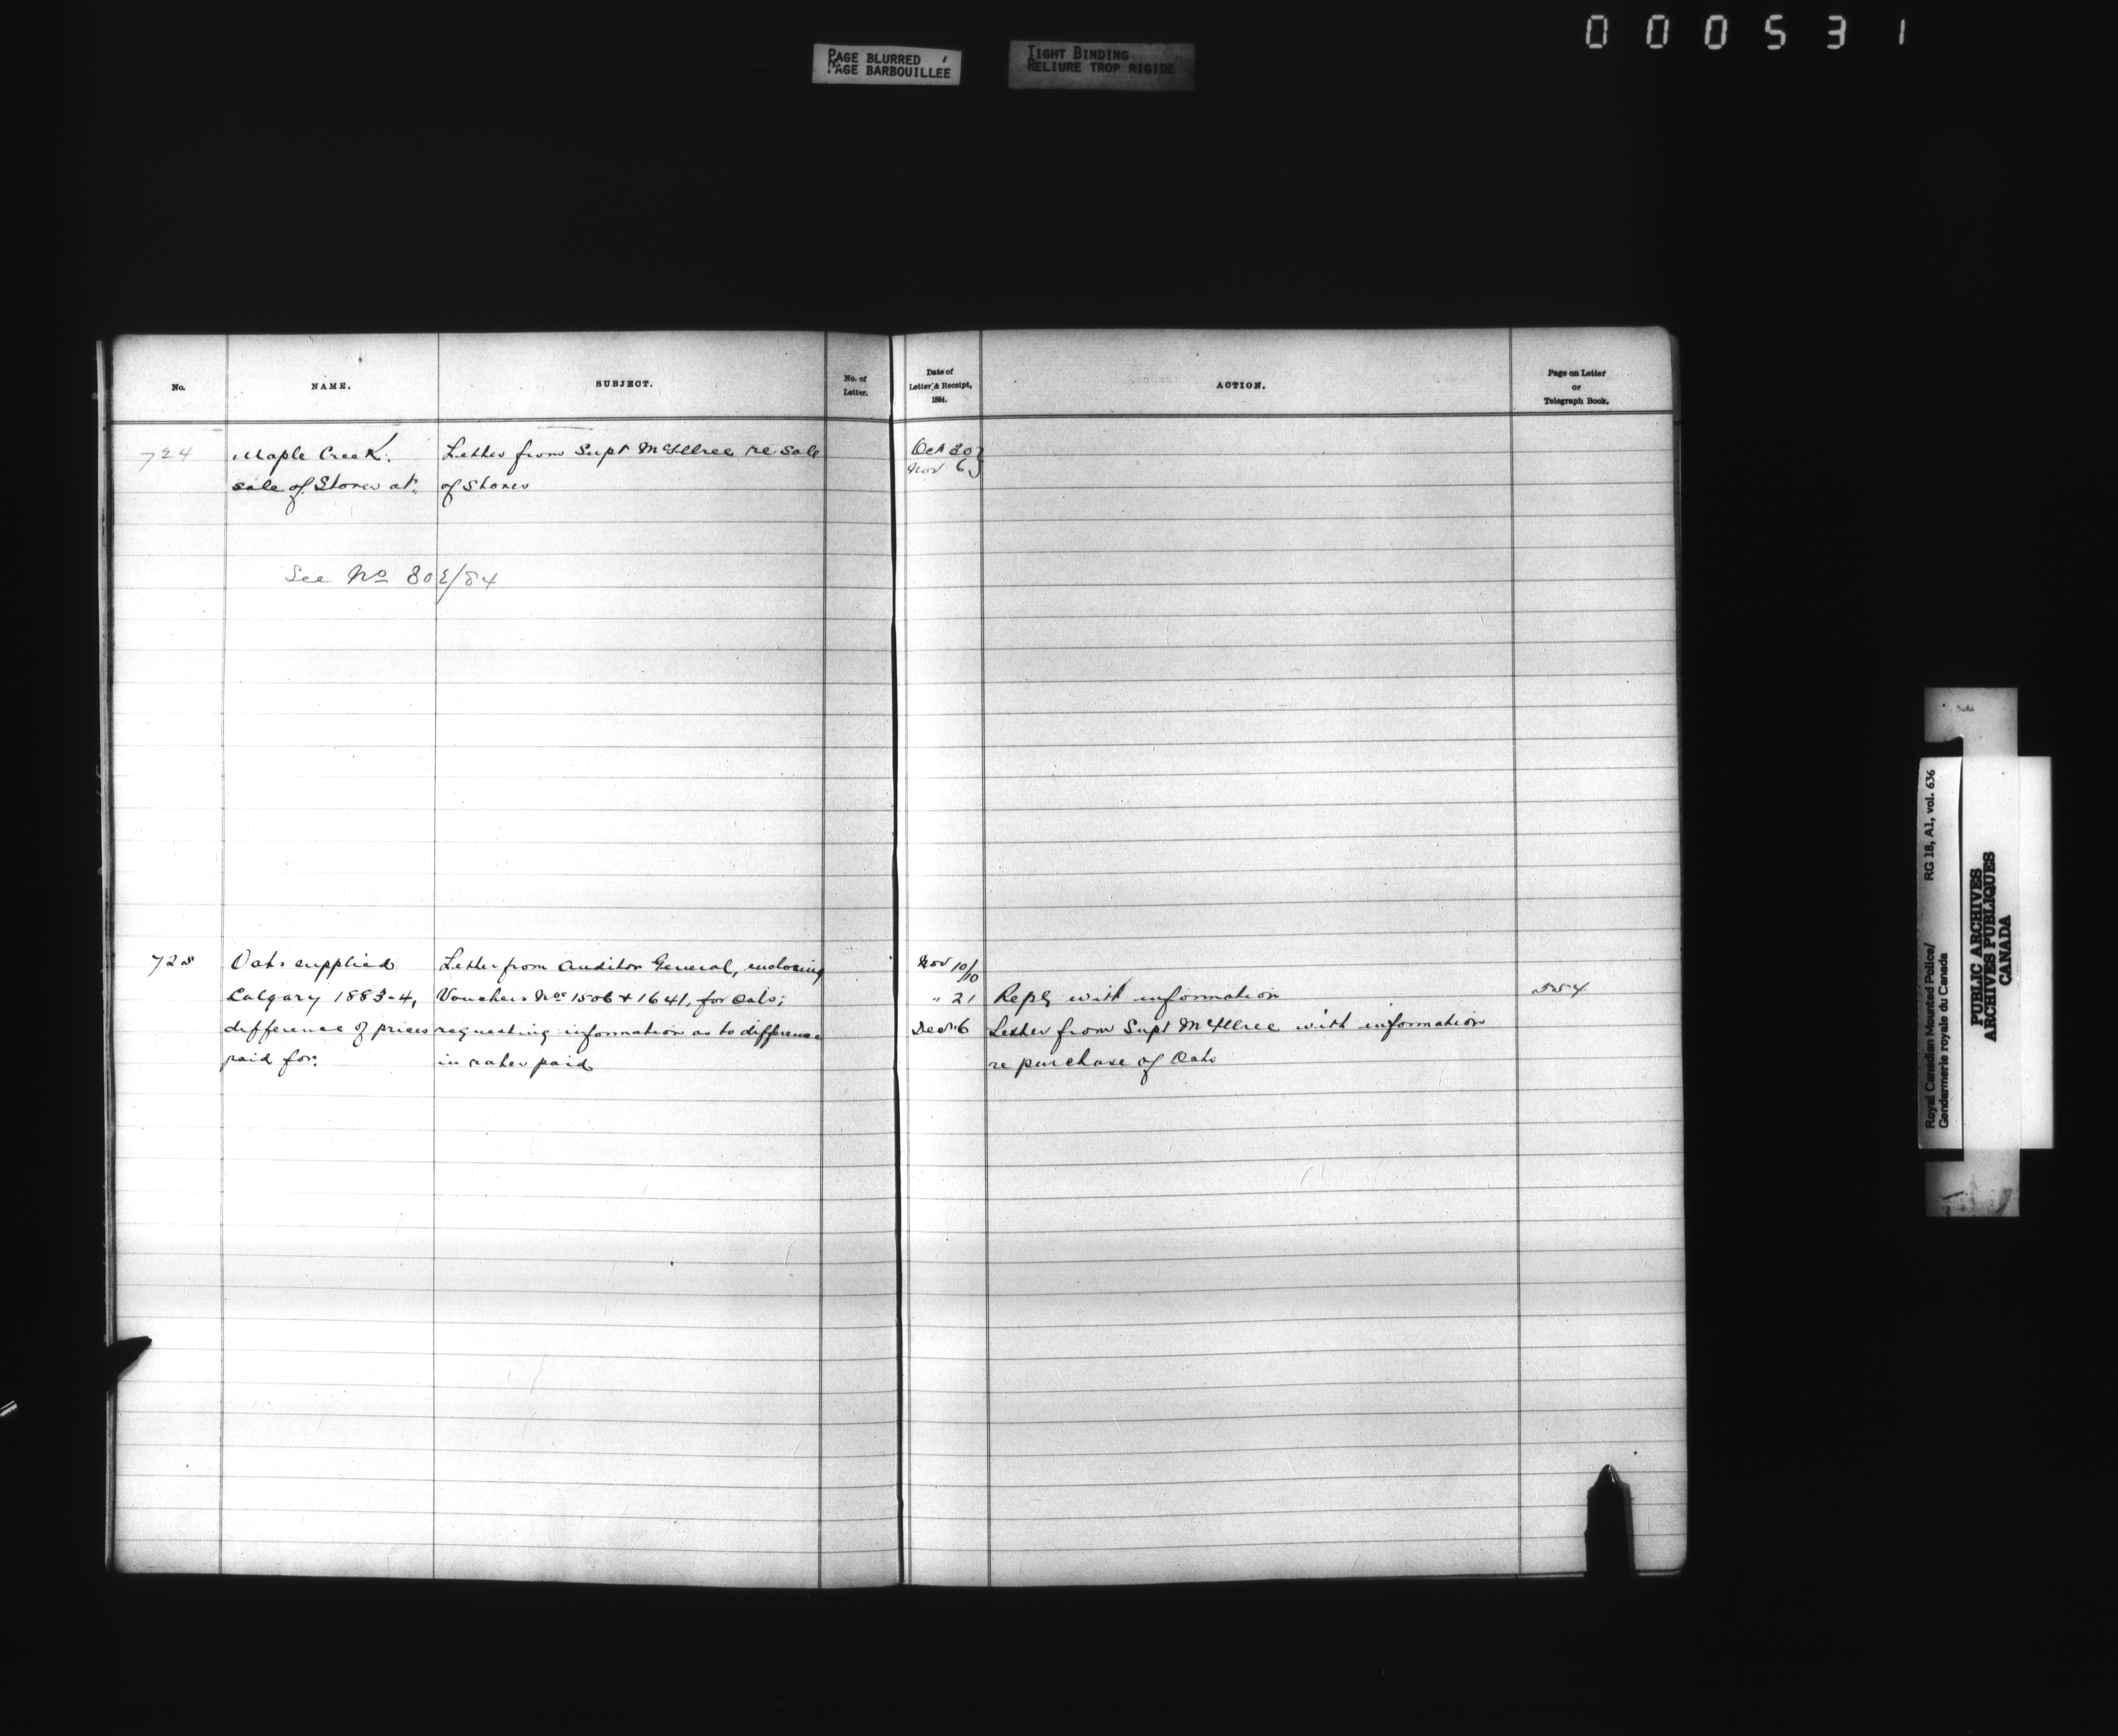 000531
PAGE BLURRED
PAGE BARBOUILLEE
TIGHT BINDING
RELIURE TROP RIGIDE
No.
NAME.
SUBJECT.
No. of
Letter.
Date of
Letter & Receipt,
1884.
ACTION.
Page on Letter
or
Telegraph Book.
724 Maple Creek. Letter from Supt McIllree re Sale Oct 30
sale of Stores at. of Stores Nov 6
See No 802/84
725 Oats supplied Letter from Auditor General, enclosing Nov 10/10
Calgary 1883-4, Vouchers Nos 1506 & 1641, for Oats; " 21 Reply with information 554
difference of prices requesting information as to difference Dec 6 Letter from Supt McIllree with information
paid for: in rates paid re purchase of Oats
Royal Canadian Mounted Police/ RG 18, A1, vol. 636
Gendarmerie royale du Canada
PUBLIC ARCHIVES
ARCHIVES PUBLIQUES
CANADA